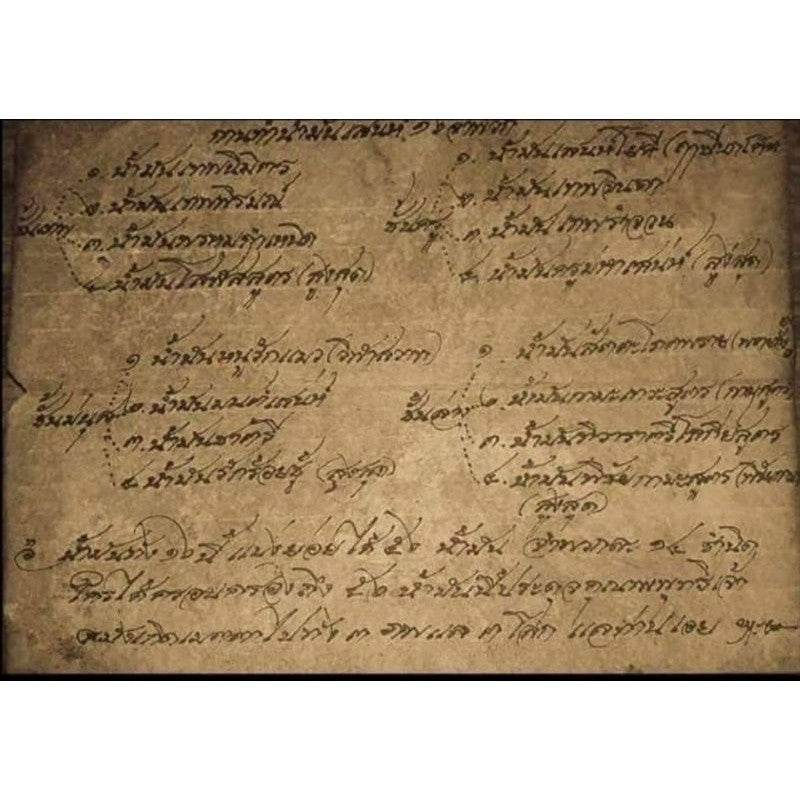 การทำน้ำมันเสน่ห์ ๑๖ จำพวก
๑. น้ำมันเทพนิมิตร
๒. น้ำมันเทพพิรมณ์
ชั้นเทพ
๓. น้ำมันพรหมกำเหนิด
๔. น้ำมันโสฬสสูตร (สูงสุด)
๑. น้ำมันเสน่ห์โยคี
๒. น้ำมันเทพจินดา
ชั้นครู
๓. น้ำมันเทพรำจวน
๔. น้ำมันครูมหาเสน่ห์ (สูงสุด)
๑. น้ำมันหนูรักแมว
ชั้นมนุส ๒. น้ำมันมนต์เสน่ห์
๓. น้ำมันชาตรี
๔. น้ำมันรักร้อยชู้ (สูงสุด)
๑. น้ำมัน
ชั้นล่าง ๒. น้ำมันกามะการะสูตร
๓. น้ำมัน
๔. น้ำมันพิชัยกามะสูตร
(สูงสุด)
น้ำมันทั้ง ๑๖ นี้ แบ่งย่อยได้ น้ำมัน จำพวกละ ๑๔ ชำนิด
ใครได้ครอบครองถึง น้ำมันนี้ประดุจคุณพระพุทธิเจ้า
บังเกิดเมตตาไปทั้ง ๓ ภพ แล ๓ โลก แลท่านเอย